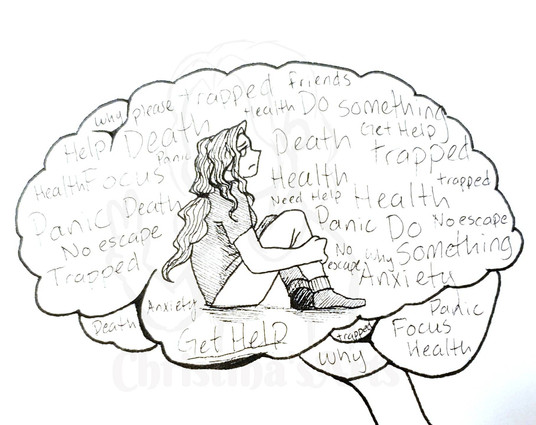 Why please trapped Friends
Health Do something
Help Death Death Get Help
Panic Trapped
Health Focus Health trapped
Need Help Health
Panic Death Panic Do No escape
No escape No escape Why Something
Trapped Anxiety
Anxiety
Death Get Help trapped Panic
Focus
Why Health
Christina